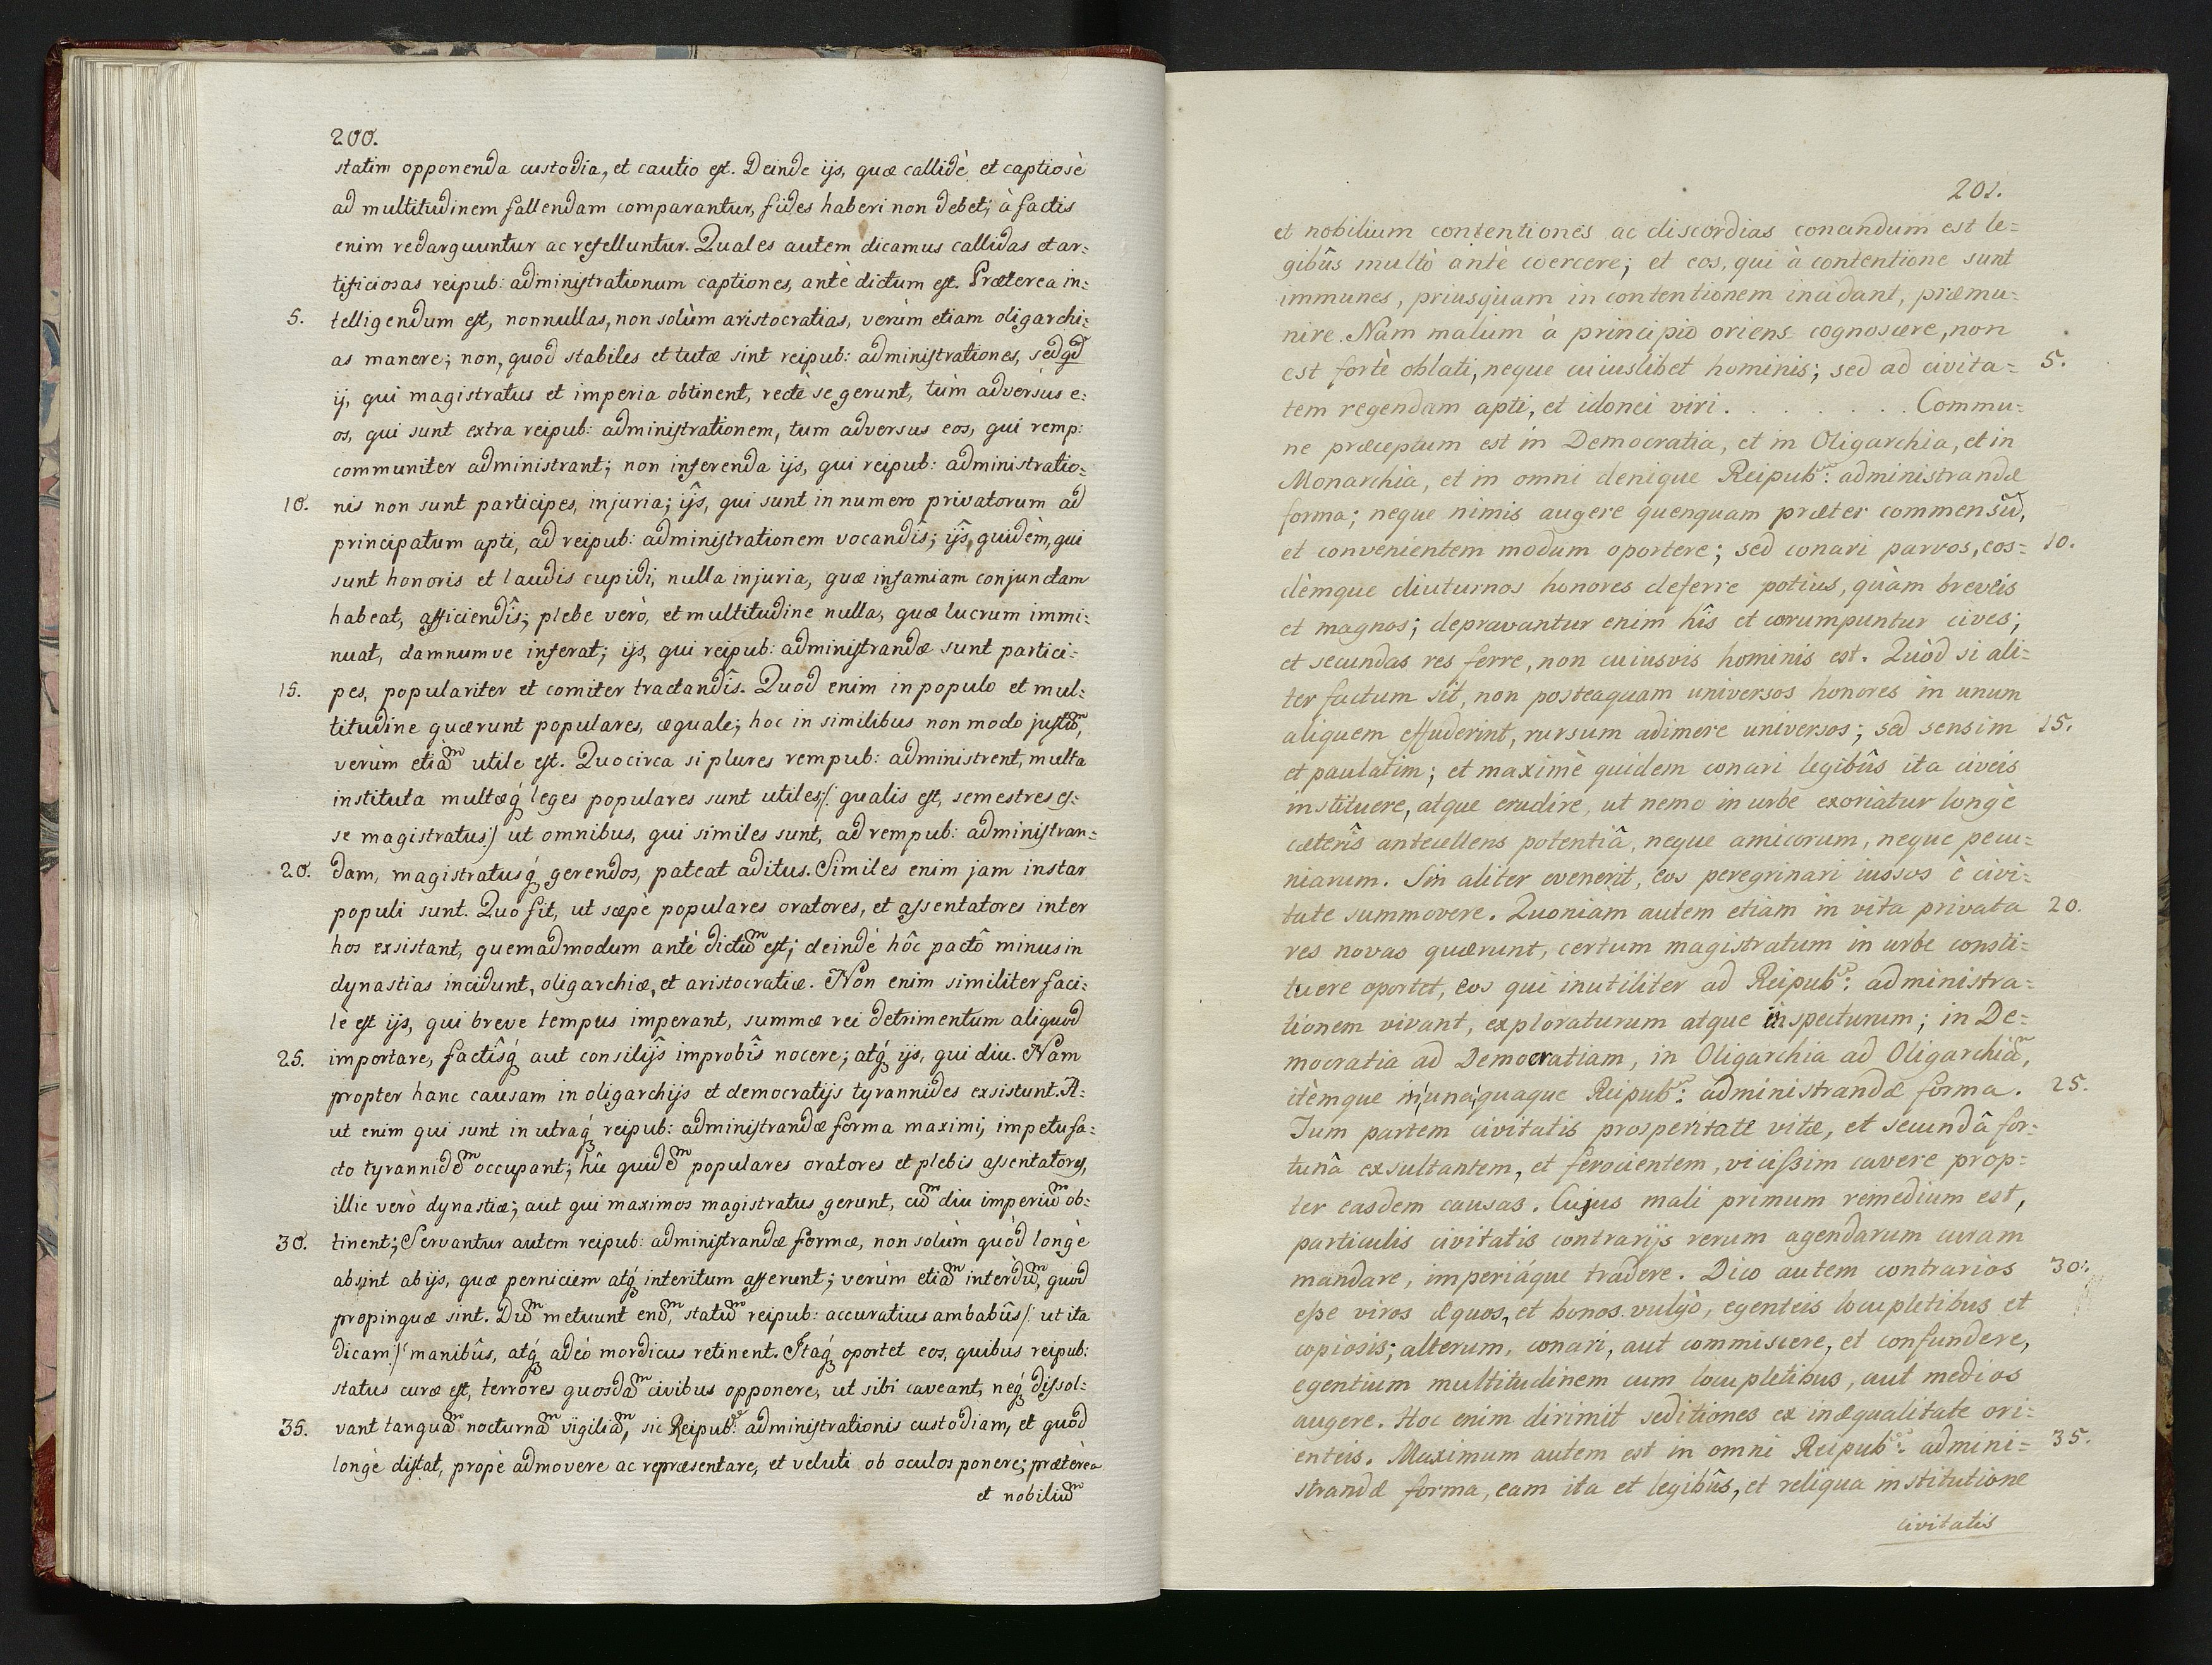 200.
statim opponenda custodia, et cautio est. Deinde ijs, quæ callidè et captiosè
ad multitudinem fallendam comparantur, fides haberi non debet; à factis
enim redarguuntur ac refelluntur. Quales autem dicamus callidas et ar=
tificiosas reipub: administrationum captiones, antè dictum est. Præterea in=
5. telligendum est, nonnullas, non solùm aristocratias, verùm etiam oligarchi=
as manere; non, quod stabiles et tutæ sint reipub: administrationes, sed qd
ij, qui magistratus et imperia obtinent, rectè se gerunt, tùm adversùs e=
os, qui sunt extra reipub: administrationem, tum adversus eos, qui remp:
communiter administrant; non inferenda ijs, qui reipub: administratio=
10. nis non sunt participes, injuria; ijs, qui sunt in numero privatorum ad
principatum apti, ad reipub: administrationem vocandîs; ijs, quidèm, qui
sunt honoris et laudis cupidi, nulla injuria, quæ infamiam conjunctam
habeat, afficiendîs; plebe verò, et multitudine nulla, quæ lucrum immi=
nuat, damnumve inferat; ijs, qui reipub: administrandæ sunt partici=
15. pes, populariter et comiter tractandîs. Quod enim in populo et mul=
titudine quærunt populares, æquale; hoc in similibus non modo justũm,
verùm etiãm utile est. Quocirca si plures rempub: administrent, multa
instituta multæq́ leges populares sunt utiles/: qualis est, semestres es=
se magistratus:/ ut omnibus, qui similes sunt, ad rempub: administran=
20. dam, magistratusq́ gerendos, pateat aditus. Similes enim jam instar
populi sunt. Quo fit, ut sæpè populares oratores, et assentatores inter
hos exsistant, quemadmodum antè dictum est; deindè hôc pactô minus in
dynastias incidunt, oligarchiæ, et aristocratiæ. Non enim similiter faci=
lè est ijs, qui breve tempus imperant, summæ rei detrimentum aliquod
25. importare, factîsq́ aut consilijs improbîs nocere; atq́ ijs, qui diu. Nam
propter hanc causam in oligarchijs et democratijs tyrannides exsistunt. A=
ut enim qui sunt in utraq́ reipub: administrandæ forma maximi, impetu fa=
cto tyrannidem occupant; hîc quidem populares oratores et plebis assentatores,
illic verò dynastiæ; aut qui maximos magistratus gerunt, cum diu imperium ob=
30. tinent; Servantur autem reipub: administrandæ formæ, non solùm quòd longè
absint ab ijs, quæ perniciem atq́ interitum afferunt; verùm etiam interdum, quod
propinquæ sint. Dum metuunt enim, statum reipub: accuratius ambabûs/: ut ita
dicam:/ manibûs, atq́ adeò mordicus retinent. Itaq́ oportet eos, quibus reipub:
status curæ est, terrores quosdam civibus opponere, ut sibi caveant, neq́ dissol=
35. vant tanquam nocturnam vigiliam, sic Reipub:æ administrationis custodiam, et quod
longè distat, propè admovere ac repræsentare, et veluti ob oculos ponere; prætereà
et nobilium
201.
et nobilium contentiones ac discordias conandum est le=
gibûs multò antè coercere; et eos, qui à contentione sunt
immunes, priusquam in contentionem incidant, præmu=
nire. Nam malum à principio oriens cognoscere, non
est fortè oblati, neque cuiuslibet hominis; sed ad civita= 5.
tem regendam apti, et idonei viri. . . . . . . . . Commu=
ne præceptum est in Democratia, et in Oligarchia, et in
Monarchia, et in omni denique Reipub:æ administrandæ
forma; neque nimis augere quenquam præter commensũ,
et convenientem modum oportere; sed conari parvos, eos= 10.
dèmque diuturnos honores deferre potius, quàm breveis
et magnos; depravantur enim hîs et corumpuntur cives;
et secundas res ferre, non cuiusvis hominis est. Quòd si ali=
ter factum sit, non posteaquam universos honores in unum
aliquem effuderint, rursum adimere universos; sed sensim 15.
et paulatim; et maximè quidem conari legibûs ita civeis
instituere, atque erudire, ut nemo in urbe exoriatur longè
cæterîs antecellens potentiâ, neque amicorum, neque pecu=
niarum. Sin aliter evenerit, eos peregrinari iussos è civi=
tate summovere. Quoniam autem etiam in vita privata 20.
res novas quærunt, certum magistratum in urbe consti=
tuere oportet, eos qui inutiliter ad Reipub:æ administra=
tionem vivant, exploraturum atque inspecturum; in De=
mocratia ad Democratiam, in Oligarchia ad Oligarchiã,
itèmque in unaquaque Reipub:æ administrandæ forma. 25.
Tum partem civitatis prosperitate vitæ, et secundâ for=
tunâ exsultantem, et ferocientem, vicissim cavere prop=
ter easdem causas. Cujus mali primum remedium est,
particulis civitatis contrarijs rerum agendarum curam
mandare, imperiáque tradere. Dico autem contrarios 30.
esse viros æquos, et bonos vulgò, egenteis locupletibus et
copiosis; alterum, conari, aut commiscere, et confundere,
egentium multitudinem cum locupletibus, aut medios
augere. Hoc enim dirimit seditiones ex inæqualitate ori=
enteis. Maximum autem est in omni Reipub:æ admini= 35.
strandæ forma, eam ita et legibûs, et reliqua institutione
civitatis